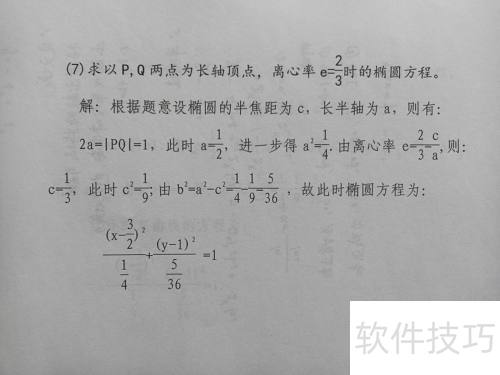 (7)求以P,Q两点为长轴顶点，离心率 e=2/3时的椭圆方程。
解：根据题意设椭圆的半焦距为c，长半轴为a，则有：
2a=|PQ|=1，此时 a=1/2，进一步得 a²=1/4.由离心率 e=2/3=c/a,则:
c=1/3，此时 c²=1/9;由 b²=a²-c²=1/4-1/9=5/36，故此时椭圆方程为:
(x-3/2)²/(1/4)+(y-1)²/(5/36)=1
软件技巧